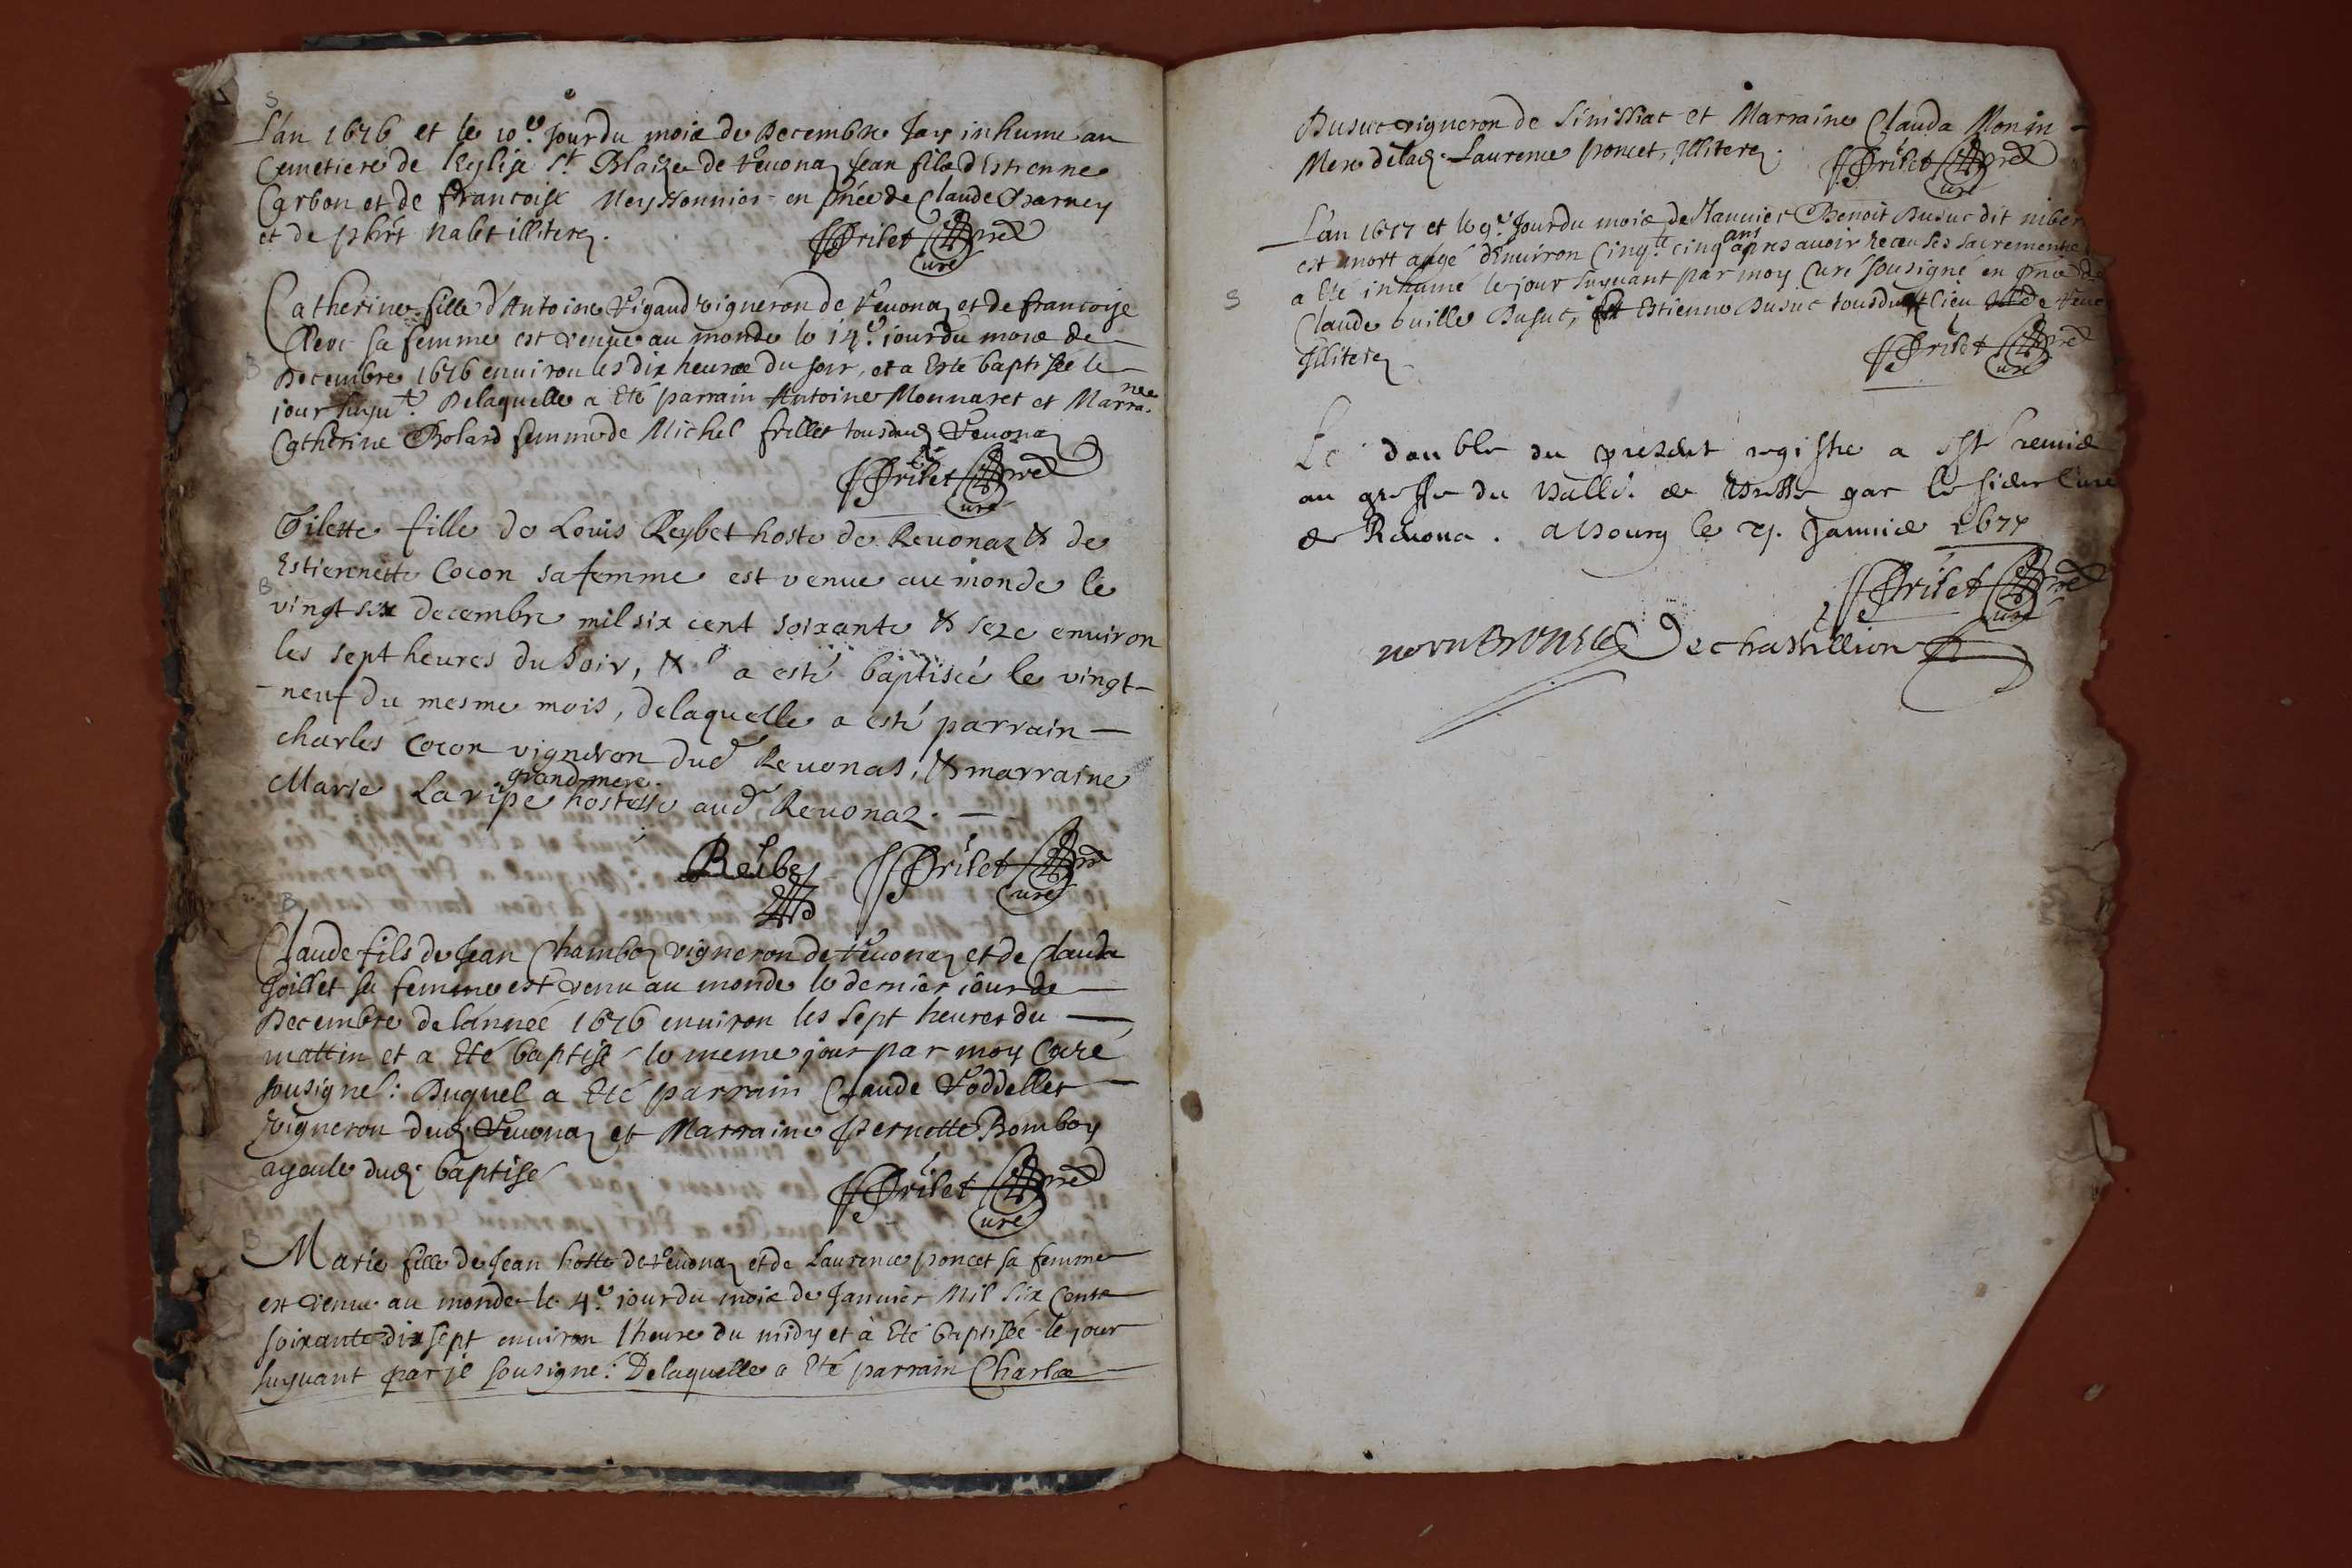 S
L'an 1676 et le 10e. Jour du mois de Decembre Jay inhumé au
Cemetiere de l'Eglise St. Blaize de Reuonaz Jean fils d'Estienne
Carbon et de francoise Meyssonnier en pnće de Claude Charney
et de phrt Nalet illiterez.
J Frilet pre
Curé
Catherine fille d'Antoine Rigaud vigneron de Reuonaz et de francoise
sa femme est venue au monde le 14e. jour du mois de
B
Decembre 1676 enuiron les dix heures du soir, et a Esté baptisée le
jour suyut. Delaquelle a Eté parrain Antoine Monnaret et Marrane
Catherine Bolard femme de Michel frillet tous dudz Reuonaz
J Frilet pre
Curé
Gilette fille de Louis Reybet hoste de Reuonaz & de
Estiennette Cocon sa femme est venue au monde le
B
vingt six decembre mil six cent soixante & seze enuiron
les sept heures du soir, & a esté baptisée le vingt-
neuf du mesme mois, delaquelle a esté parrain
charles Cocon vigneron dud Reuonas, & marraine
grandmere
Marie Laripe hostesse aud Reuonaz.
Reibet J Frilet pre
Curé
B
Claude fils de Jean Chamboz vigneron de Reuonaz et de Clauda
Goillet sa femme est venu au monde le dernier iour de
Decembre de l'année 1676 enuiron les sept heures du
mattin et a Eté baptisé le meme jour par moy Curé
sousigné: Duquel a Eté parrain Claude Roddellet
vigneron dudz Reuonaz et Marraine Pernette Bomboy
ayeule dudz baptisé
J Frilet pre
Curé
B
Marie fille de Jean hoste de Reuonaz et de Laurence poncet sa femme
est venue au monde le 4e. iour du mois de Januier Mil Six Cents
soixante dix sept enuiron l'heure du midy et à Eté baptisée le jour
suyuant par je sousigné: Delaquelle a Eté parrain Charles
Busuc vigneron de Simissiat et Marraine Clauda Monin
Mere deladz. Laurence poncet, Illiterez.
J Frilet pre
Curé
L'an 1677 et le 9e. Jour du mois de Januier Benoit Busuc dit
est mort aagé d'Enuiron Cinqte. cinq ans apres avoir receu ses sacrements
S
a Eté inhumé le jour suyuant par moy Curé sousigné en pnće de
Claude buille Busuc, Estienne Busuc tous dudt lieu de
Illiterez
J Frilet pre
Curé
Le double du present registre a esté remis
au greffe du Balli. de Bresse par le sieur Curé
de Reuona. a Bourg le 21. Januie 1677
J Frilet pre
Curé
Dechastillion